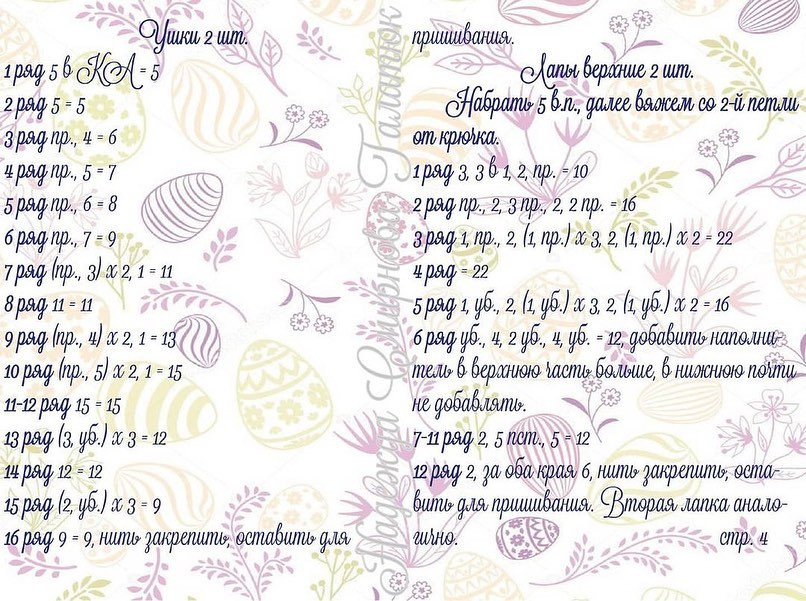 Ушки 2 шт.
1 ряд 5 в КА = 5
2 ряд 5 = 5
3 ряд пр., 4 = 6
4 ряд пр., 5 = 7
5 ряд пр., 6 = 8
6 ряд пр., 7 = 9
7 ряд (пр., 3) х 2, 1 = 11
8 ряд 11 = 11
9 ряд (пр., 4) х 2, 1 = 13
10 ряд (пр., 5) х 2, 1 = 15
11-12 ряд 15 = 15
13 ряд (3, уб.) х 3 = 12
14 ряд 12 = 12
15 ряд (2, уб.) х 3 = 9
16 ряд 9 = 9, нить закрепить, оставить для
пришивания.
Лапы верхние 2 шт.
Набрать 5 в.п., далее вяжем со 2-й петли
от крючка.
1 ряд 3, 3 в 1, 2, пр. = 10
2 ряд пр., 2, 3 пр., 2, 2 пр. = 16
3 ряд 1, пр., 2, (1, пр.) х 3, 2, (1, пр.) х 2 = 22
4 ряд = 22
5 ряд 1, уб., 2, (1, уб.) х 3, 2, (1, уб.) х 2 = 16
6 ряд уб., 4, 2 уб., 4, уб. = 12, добавить наполни-
тель в верхнюю часть больше, в нижнюю почти
не добавлять.
7-11 ряд 2, 5 пст., 5 = 12
12 ряд 2, за оба края 6, нить закрепить, оста-
вить для пришивания. Вторая лапка анало-
гично.
стр. 4
©Надежда Смирнова Галатюк